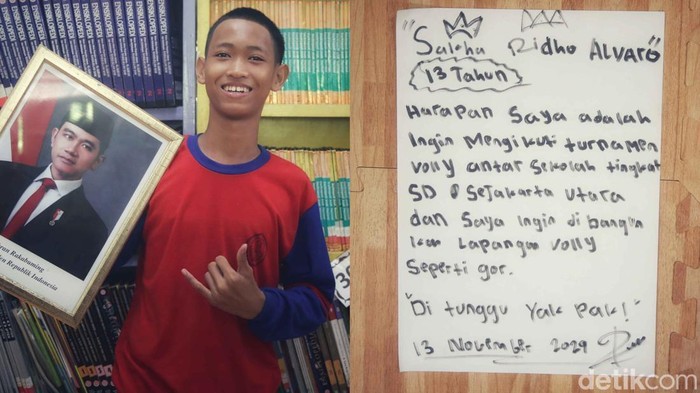 ...ran Rakabuming
...den Republik Indonesia
"Saleha Ridho Alvaro"
13 Tahun
Harapan Saya adalah
Ingin Mengikuti turnamen
volly antar sekolah tingkat
SD sejakarta utara
dan Saya Ingin di bangun
kan Lapangan volly
Seperti gor.
"Di tunggu Yak Pak!"
13 November 2024
detikcom